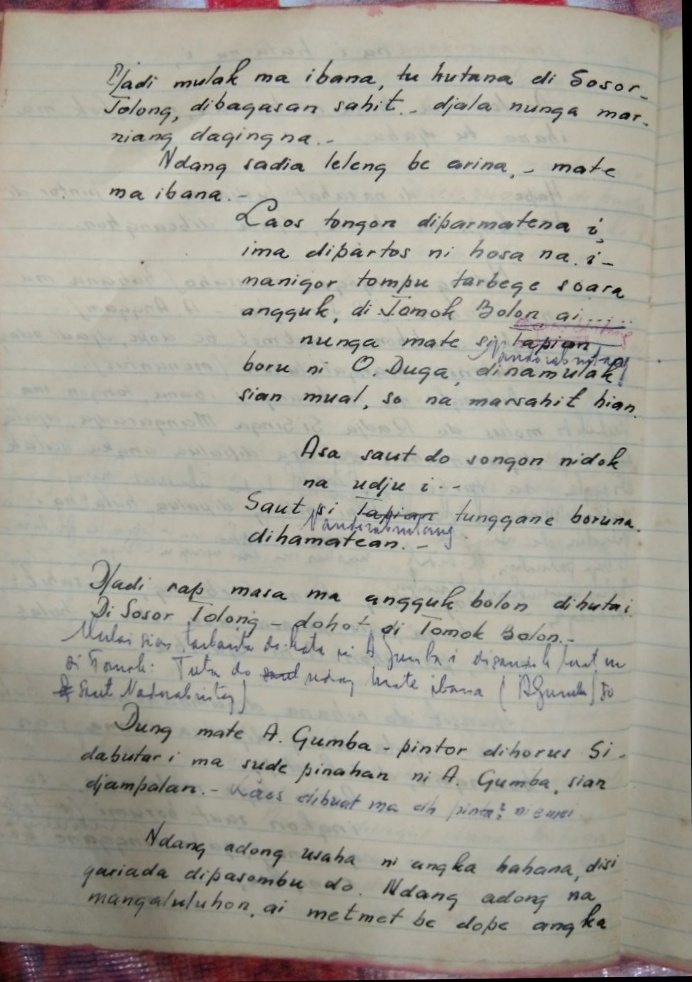 Djadi mulak ma ibana, tu hutana di Sosor-
Tolong, dibagasan sahit.- djala nunga mar-
niang dagingna.-
Ndang sadia leleng be arina,- mate
ma ibana.-
Laos tongon diparmatena i,
ima dipartos ni hosa na i-
manigor tompu tarbege soara
angguk, di Tomok Bolon ai.....
nunga mate si tapian
Nandorabintang
boru ni O. Duga, dinamulak
sian mual, so na marsahit hian.
Asa saut do songon nidok
na udju i--
Saut si Tapian tunggane boruna.
Nandorabintang
dihamatean.-
Djadi rap masa ma angguk bolon dihuta i
Di Sosor Tolong - dohot di Tomok Bolon.-
Mulai sian ni A Gumba i
di Tomok. Tutu do mate ibana (A Gumba) so
saut
Dung mate A. Gumba - pintor dihorus Si-
dabutar i ma sude pinahan ni A. Gumba, sian
djampalan.- Laos dibuat ma
Ndang adong usaha ni angka hahana, disi
gariada dipasombu do. Ndang adong na
mangaluluhon, ai metmet be dope angka